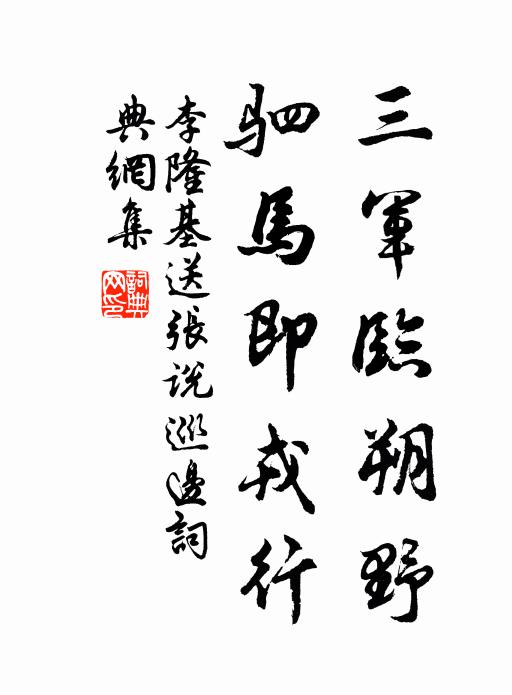 三軍臨朔野
駟馬即戎行
李隆基送張說巡邊詞
典網集
詞典網印